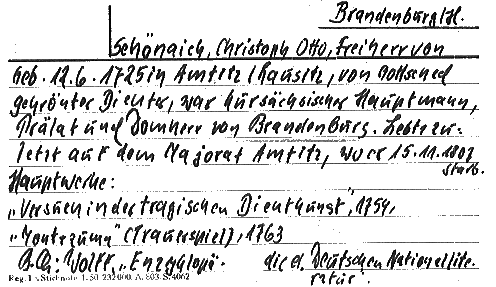 Brandenburg/H.
Schönaich, Christoph Otto, Freiherr von
Geb. 12.6.1725 in Amtitz/Lausitz, von Gottsched
gekrönter Dichter, war kursächsischer Hauptmann,
Prälat und Domherr von Brandenburg. Lebte zu-
letzt auf dem Majorat Amtitz, wo er 15.11.1807
starb.
Hauptwerke:
„Versuch in der tragischen Dichtkunst", 1754,
„Montezuma" (Trauerspiel), 1763
Wolff, „Enzyklopä-
die d. Deutschen Nationallite-
ratur".